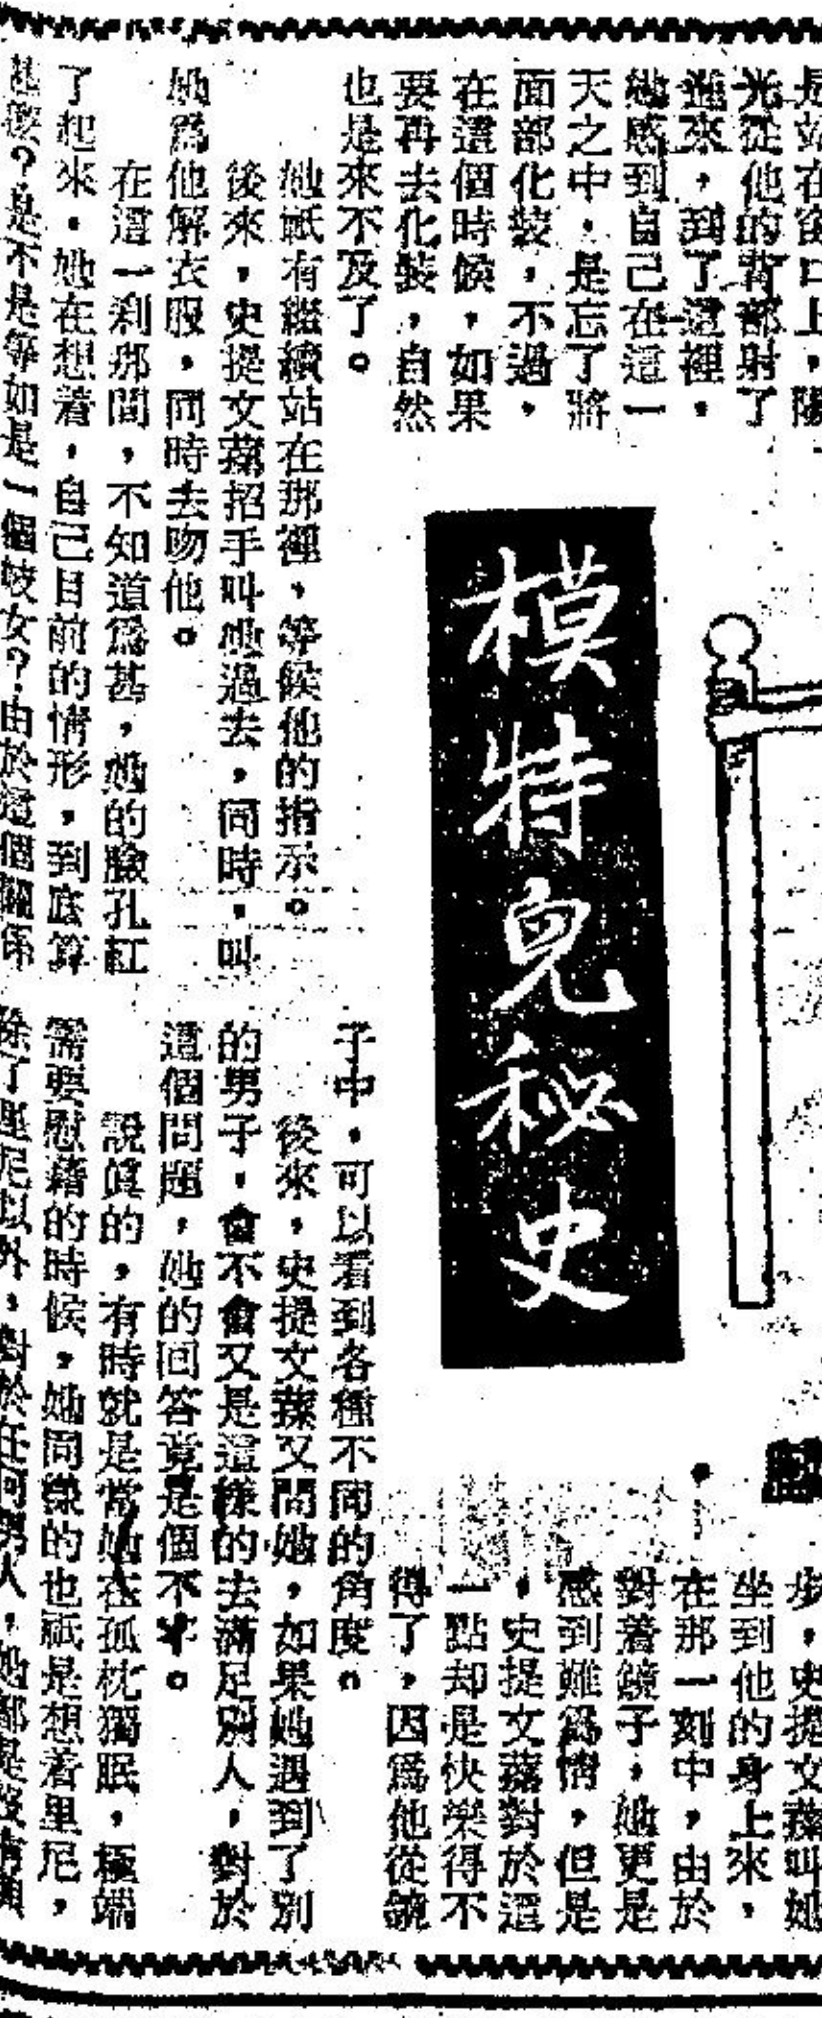 是站在窗口上，陽
光從他的背部射了
進來，到了這裡，
她感到自己在這一
天之中，是忘了將
面部化裝，不過，
在這個時候，如果
要再去化裝，自然
也是來不及了。
她祇有繼續站在那裡，等候他的指示。
後來，史提文蓀招手叫她過去，同時，叫
她爲他解衣服，同時去吻他。
在這一刹那間，不知道爲甚，她的臉孔紅
了起來，她在想着，自己目前的情形，到底算
甚麼？是不是等如是一個妓女？由於這個關係
模特兒秘史
步，史提文蓀叫她
坐到他的身上來，
在那一刻中，由於
對着鏡子，她更是
感到難爲情，但是
，史提文蓀對於這
一點却是快樂得不
得了，因爲他從鏡
子中，可以看到各種不同的角度。
後來，史提文蓀又問她，如果她遇到了別
的男子，會不會又是這樣的去滿足別人，對於
這個問題，她的回答竟是個不字。
說眞的，有時就是當她在孤枕獨眠，極端
需要慰藉的時候，她同樣的也祇是想着里尼，
除了里尼以外，對於任何男人，她都是沒有